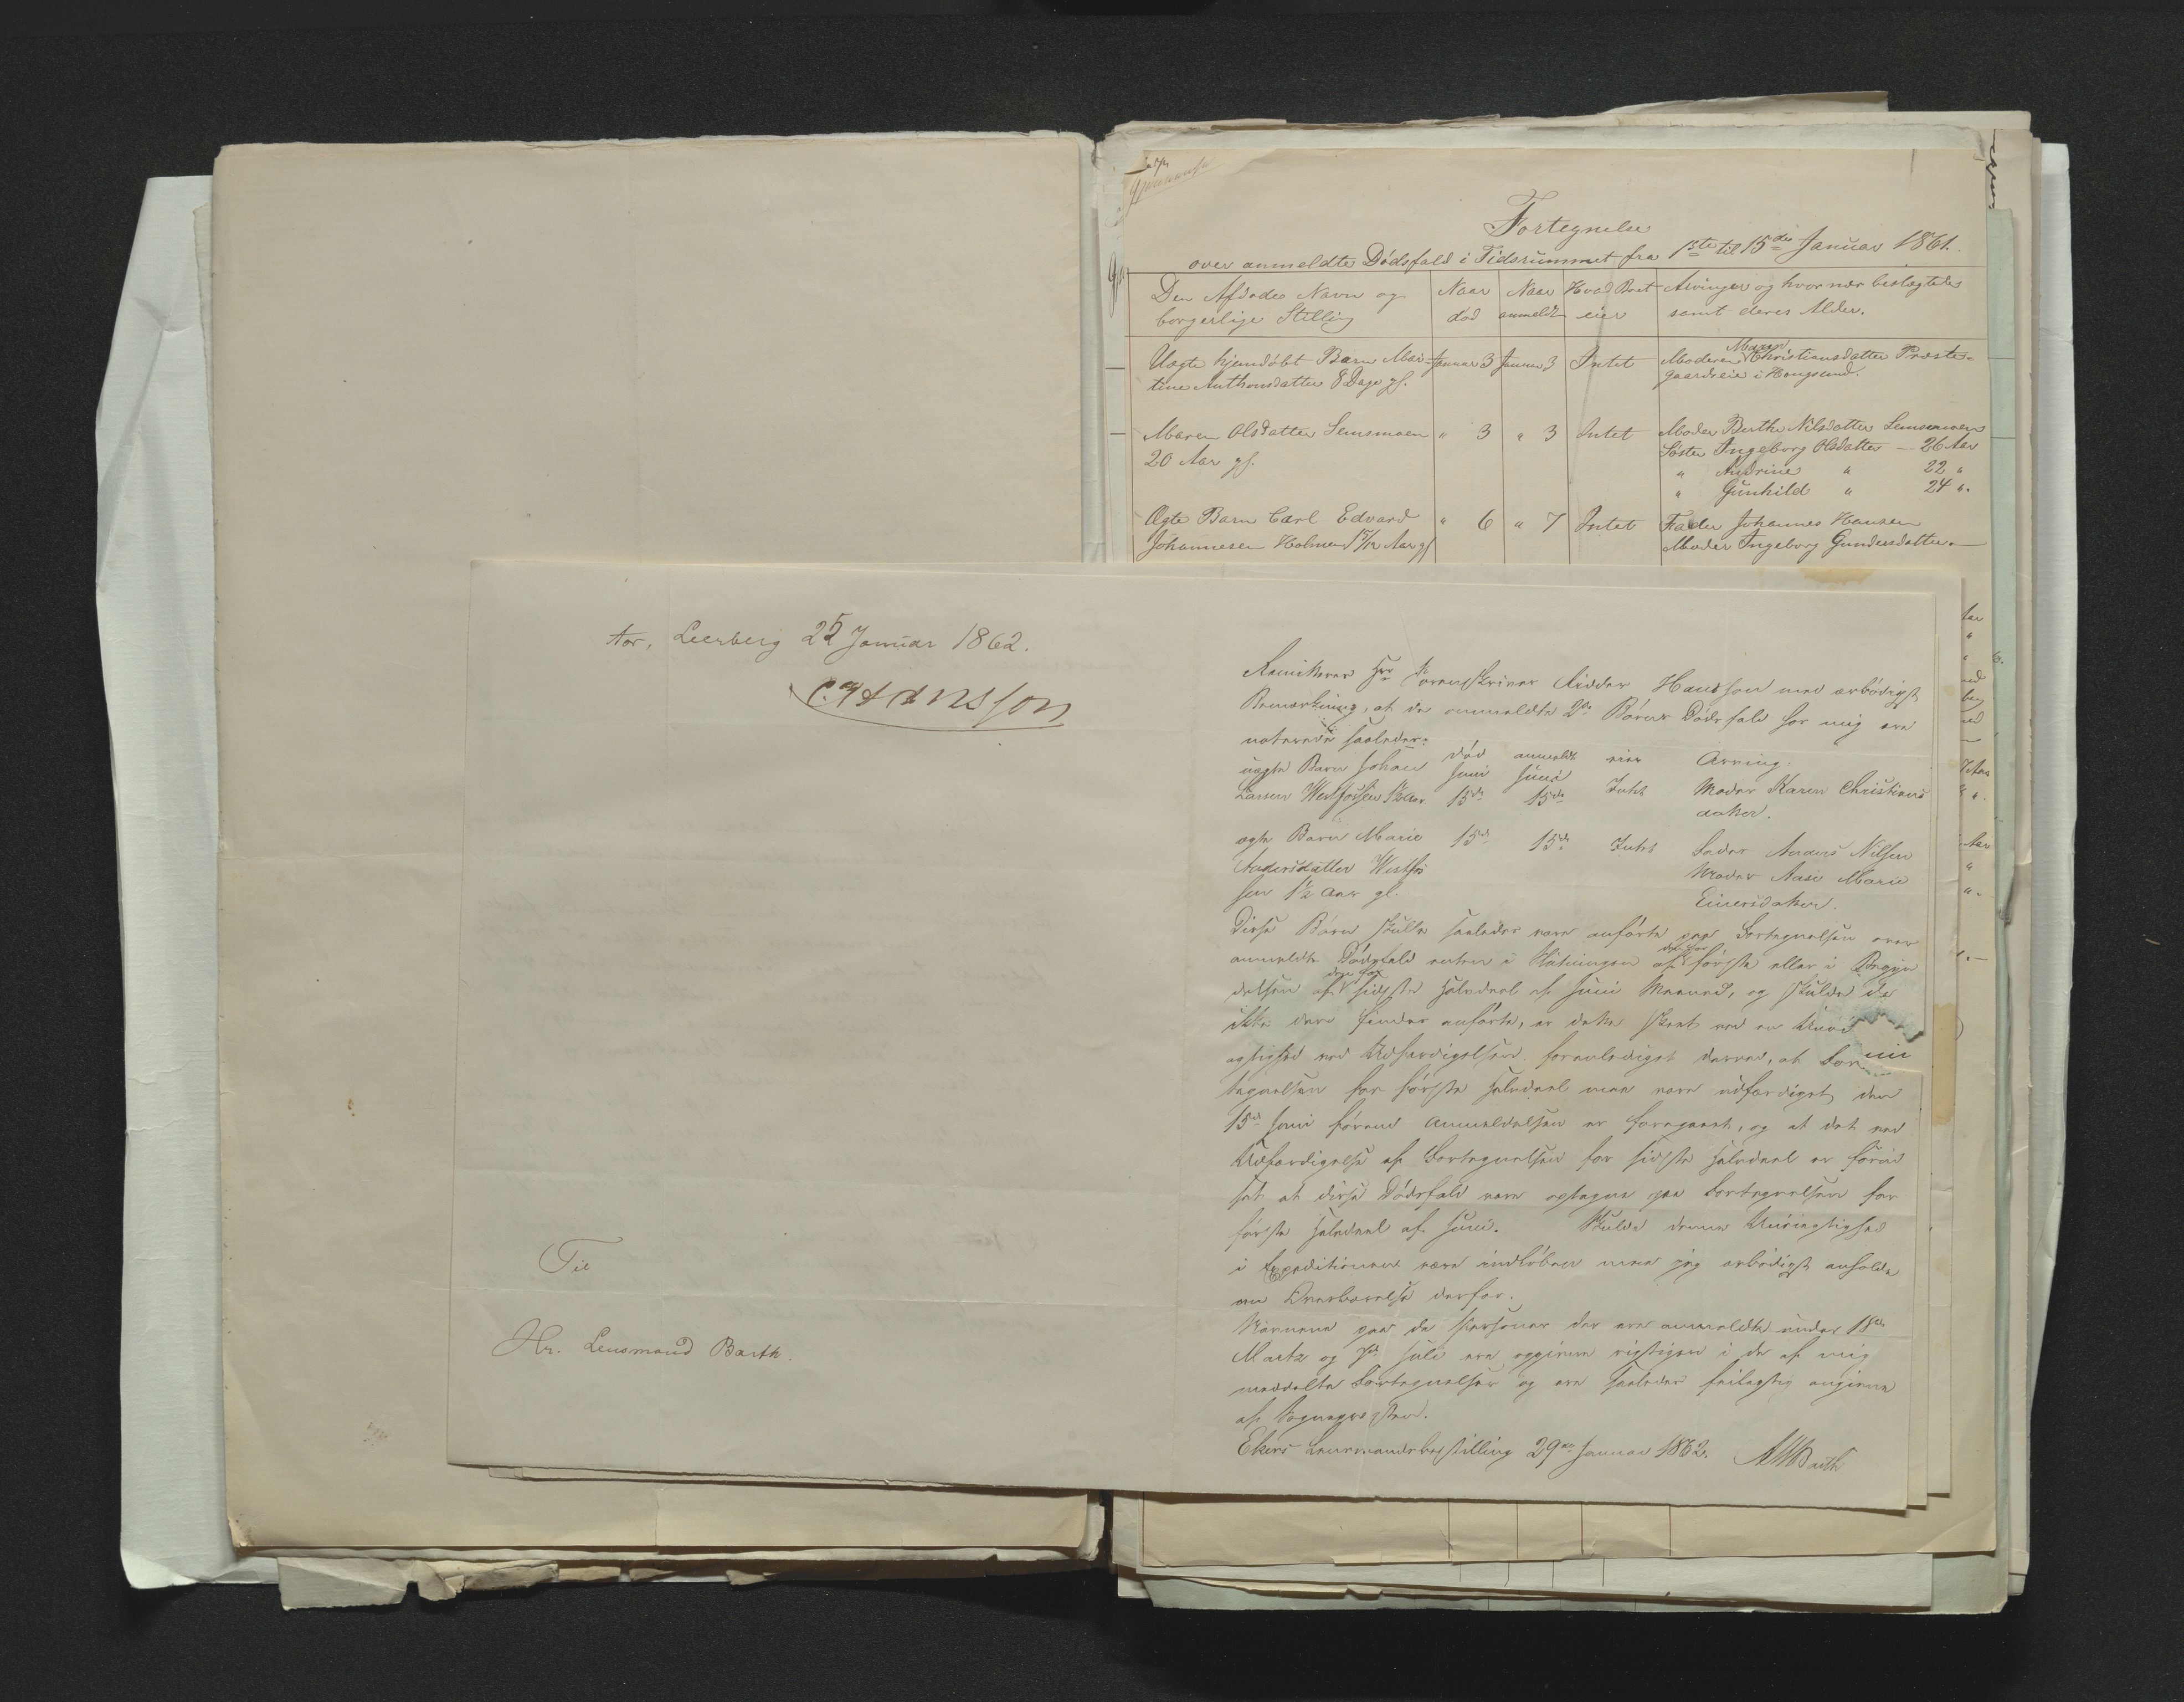 Fortegnelse
over anmeldte Dødsfald i Tidsrummet fra 1ste til 15de Januar 1861.
Den Afdødes Navn og borgerlige Stilling
Naar død
Naar anmeldt
Hvad Boet eier
Arvinger og hvor nær beslægtede samt deres Alder.
Uægte hjemdøbt Barn Mar-
tine Anthonsdatter 8 Dage gl.
Januar 3 Januar 3 Intet
Moderen Maren Christiansdatter Præste-
gaardseie i Hougsund.
Maren Olsdatter Semsmoen " 3 " 3 Intet Moder Berthe Nilsdatter Semsmoen
20 Aar gl.
Søster Ingeborg Olsdatter — 26 Aar
" Andrine " 22 "
" Gunhild " 24 ".
Ægte Barn Carl Edvard " 6 " 7 Intet Fader Johannes Hansen
Johannesen Holmen 1 5/12 Aar gl
Moder Ingeborg Gundersdatter.
Aar, Leerberg 25 Januar 1862.
C. Hansson
Til
Hr. Lensmand Barth.
Remitteres Hrr Sorenskriver Ridder Hansson med ærbødigst
Bemærkning, at de anmeldte 2de Børns Dødsfald hos mig ere
noterede saaledes:
død anmeldt eier Arving.
uægte Barn Johan Juni Juni
Larsen Westfossen 1½ Aar. 15de 15de Intet Moder Karen Christians
datter.
ægte Barn Marie 15de 15de Intet Fader Anders Nilsen
Andersdatter Westfos Moder Aase Marie
sen 1½ Aar gl. Einersdatter.
Disse Børn skulle saaledes være anførte paa Fortegnelsen over
anmeldte Dødsfald enten i Slutningen af den for første eller i Begyn
delsen af den for sidste Halvdeel af Juni Maaned, og skulde de
ikke der findes anførte, er dette skeet ved en
agtighed ved Udfærdigelsen foranlediget derved, at For
tegnelsen for første Halvdeel maa være udfærdiget den
15de Juni førend Anmeldelsen er foregaaet, og at det ved
Udfærdigelse af Fortegnelsen for sidste Halvdeel er forud
sat at disse Dødsfald vare optagne paa Fortegnelsen for
første Halvdeel af Juni. Skulde denne Unøiagtighed
i Expeditionen være indløben maa jeg ærbødigst anholde
om Overbærelse derfor.
Navnene paa de Personer der ere anmeldte under 18de
Marts og Juli ere opgivne rigtigen i de af mig
meddelte Fortegnelser og ere saaledes feilagtig angivne
af Sognepræsten.
Ekers Lensmandsbestilling 29de Januar 1862. Barth